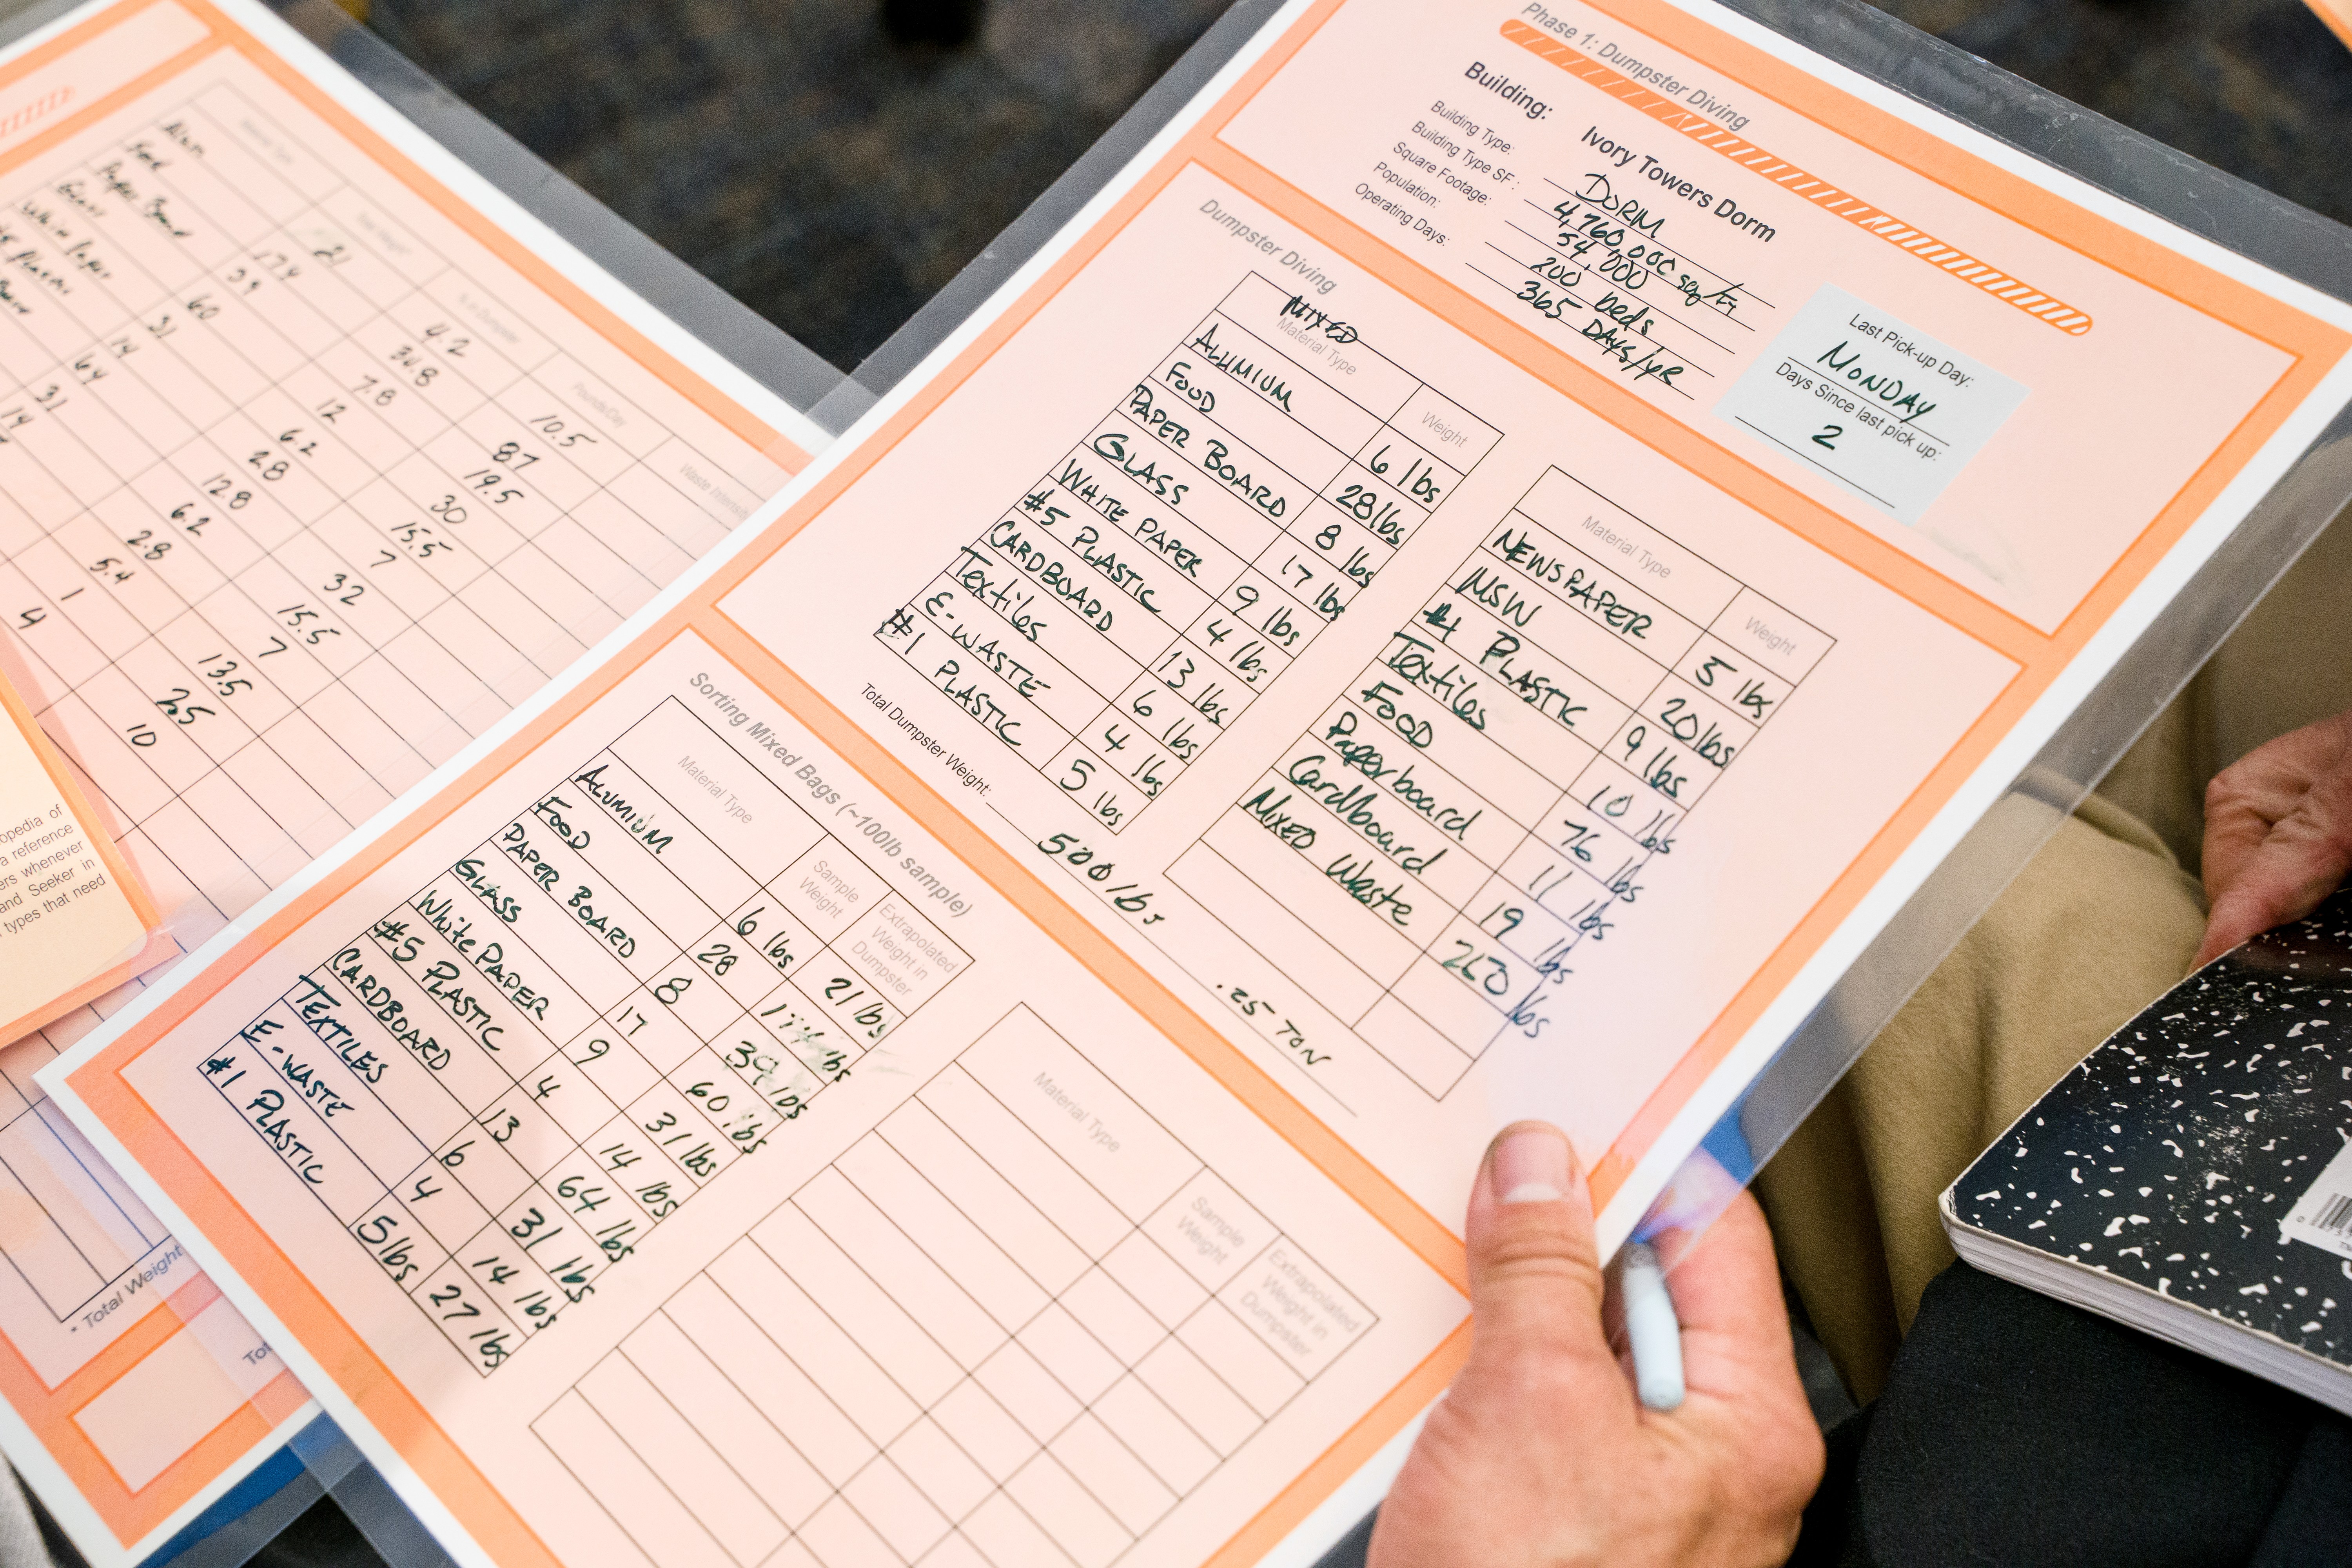 Phase 1: Dumpster Diving
Building: Ivory Towers Dorm
Building Type: DORM
Building Type SF: 4,760,000 sq/Ft
Square Footage: 54,000
Population: 200 beds
Operating Days: 365 DAYS/YR
Last Pick-up Day:
MONDAY
Days Since last pick up:
2
Dumpster Diving
MIXED
Material Type Weight
ALUMIUM 6 lbs
FOOD 28 lbs
PAPER BOARD 8 lbs
GLASS 17 lbs
WHITE PAPER 9 lbs
#5 PLASTIC 4 lbs
CARDBOARD 13 lbs
Textiles 6 lbs
E-WASTE 4 lbs
#1 PLASTIC 5 lbs
Material Type Weight
NEWSPAPER 5 lbs
MSW 20 lbs
#1 PLASTIC 9 lbs
Textiles 10 lbs
FOOD 76 lbs
Paperboard 11 lbs
Cardboard 19 lbs
MIXED Waste 250 lbs
Total Dumpster Weight: 500 lbs .25 TON
Sorting Mixed Bags (~100lb sample)
Material Type Sample Weight Extrapolated Weight in Dumpster
ALUMIUM 6 lbs 21 lbs
FOOD 28 174 lbs
PAPER BOARD 8 39 lbs
GLASS 17 60 lbs
White PAPER 9 31 lbs
#5 PLASTIC 4 14 lbs
CARDBOARD 13 64 lbs
TEXTILES 6 31 lbs
E-WASTE 4 14 lbs
#1 PLASTIC 5 lbs 27 lbs
Material Type Sample Weight Extrapolated Weight in Dumpster
Pounds/Day
21 4.2 10.5
174 34.8 87
39 7.8 19.5
60 12 30
31 6.2 15.5
14 2.8 7
64 12.8 32
31 6.2 15.5
14 2.8 7
5.4 13.5
1 2.5
4 10
Paper Board
White Paper
* Total Weight
opedia of
a reference
ers whenever
and Seeker in
types that need